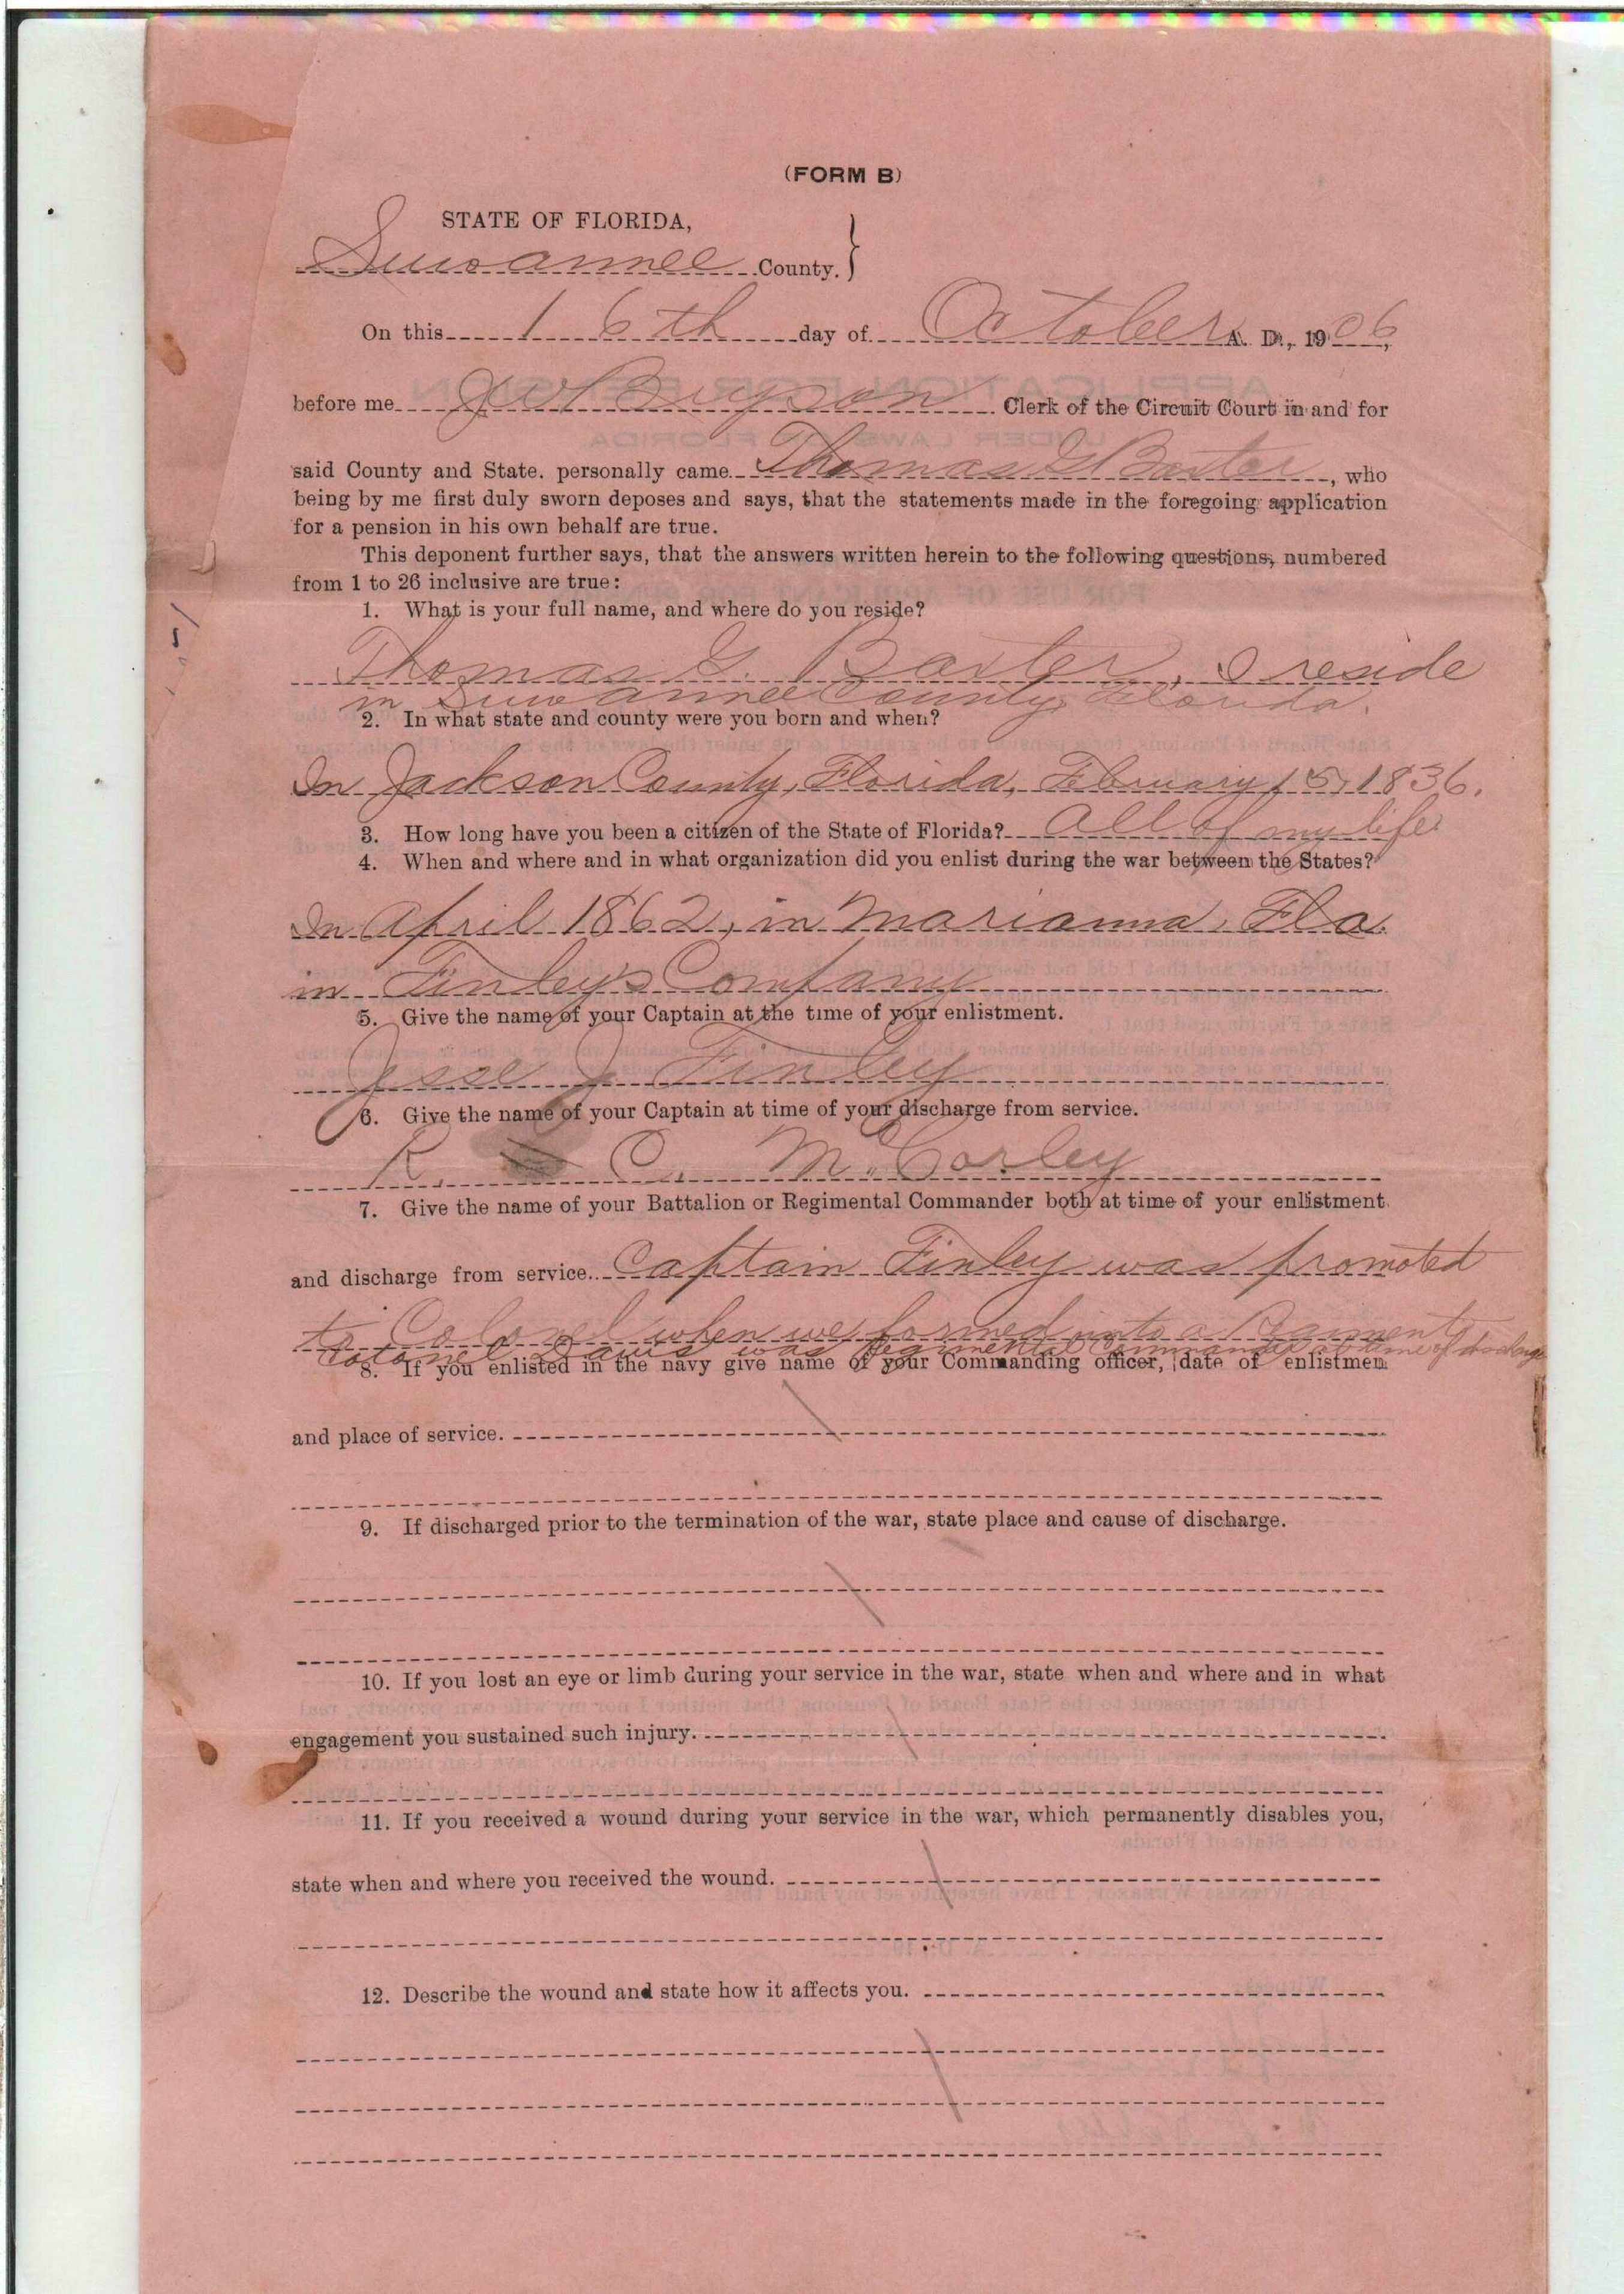 (FORM B)
STATE OF FLORIDA,
Suwannee County. }
On this 16th day of October A. D., 1906,
before me J W Bryson Clerk of the Circuit Court in and for
said County and State. personally came Thomas G Baxter, who
being by me first duly sworn deposes and says, that the statements made in the foregoing application
for a pension in his own behalf are true.
This deponent further says, that the answers written herein to the following questions, numbered
from 1 to 26 inclusive are true:
1. What is your full name, and where do you reside?
Thomas G. Baxter, I reside
in Suwannee County, Florida.
2. In what state and county were you born and when?
In Jackson County, Florida, February 15, 1836.
3. How long have you been a citizen of the State of Florida? All of my life
4. When and where and in what organization did you enlist during the war between the States?
In April 1862, in Marianna, Fla.
in Finley's Company
5. Give the name of your Captain at the time of your enlistment.
Jesse J Finley
6. Give the name of your Captain at time of your discharge from service.
R. C. M.Corley
7. Give the name of your Battalion or Regimental Commander both at time of your enlistment
and discharge from service. Captain Finley was promoted
to Colonel when we formed into a Regiment
Colonel Davis was Regimental Commander at time of discharge
8. If you enlisted in the navy give name of your Commanding officer, date of enlistmen
and place of service.
9. If discharged prior to the termination of the war, state place and cause of discharge.
10. If you lost an eye or limb during your service in the war, state when and where and in what
engagement you sustained such injury.
11. If you received a wound during your service in the war, which permanently disables you,
state when and where you received the wound.
12. Describe the wound and state how it affects you.